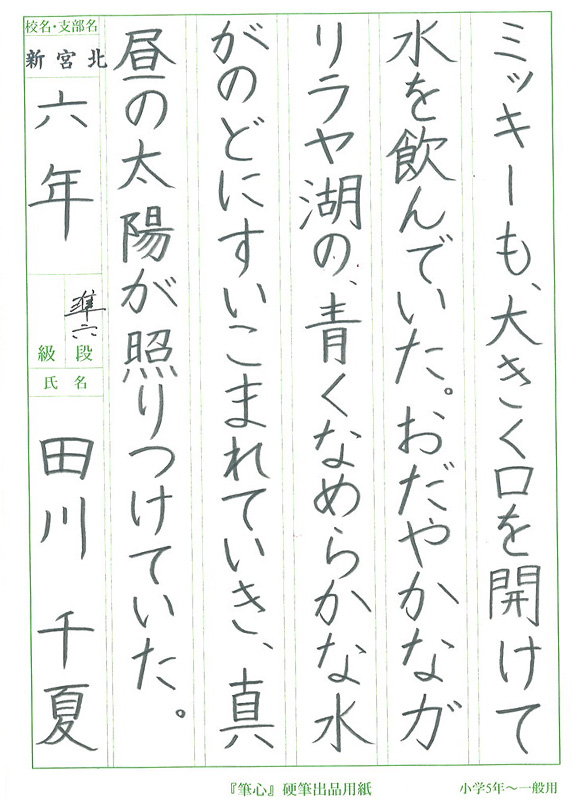 ミッキーも、大きく口を開けて
水を飲んでいた。おだやかなガ
リラヤ湖の、青くなめらかな水
がのどにすいこまれていき、真
昼の太陽が照りつけていた。
校名・支部名
新宮北
六年
準六
段級
氏名
田川千夏
『筆心』硬筆出品用紙
小学5年〜一般用